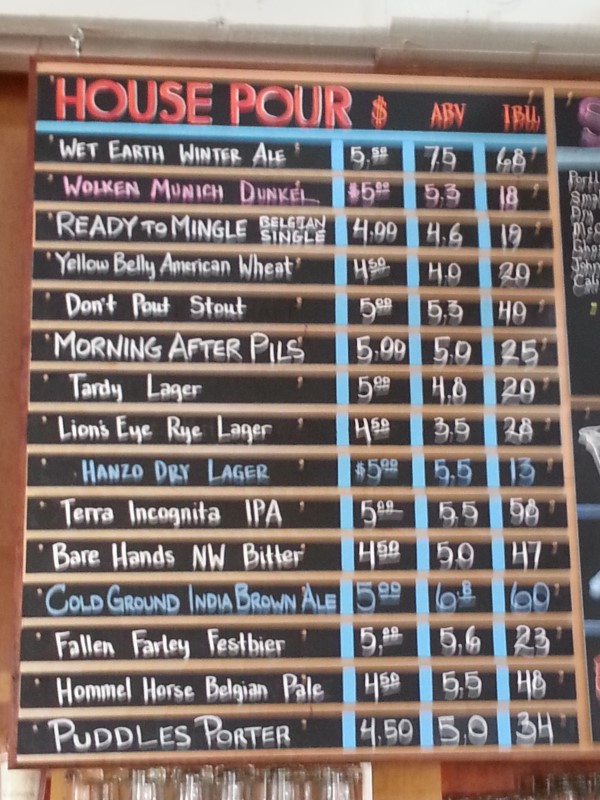 HOUSE POUR $ ABV IBU
WET EARTH WINTER ALE 5.50 7.5 68
WOLKEN MUNICH DUNKEL $5.00 5.3 18
READY TO MINGLE BELGIAN SINGLE 4.00 4.6 19
Yellow Belly American Wheat 4.50 4.0 20
Don't Pout Stout 5.00 5.3 40
MORNING AFTER PILS 5.00 5.0 25
Tardy Lager 5.00 4.8 20
Lion's Eye Rye Lager 4.50 3.5 28
HANZO DRY LAGER $5.00 5.5 13
Terra Incognita IPA 5.00 5.5 58
Bare Hands NW Bitter 4.50 5.0 47
COLD GROUND INDIA BROWN ALE 5.00 6.8 60
Fallen Farley Festbier 5.00 5.6 23
Hommel Horse Belgian Pale 4.50 5.5 48
PUDDLES PORTER 4.50 5.0 34
S
Portl
Smal
Dry
McC
Ghos
John
Cali